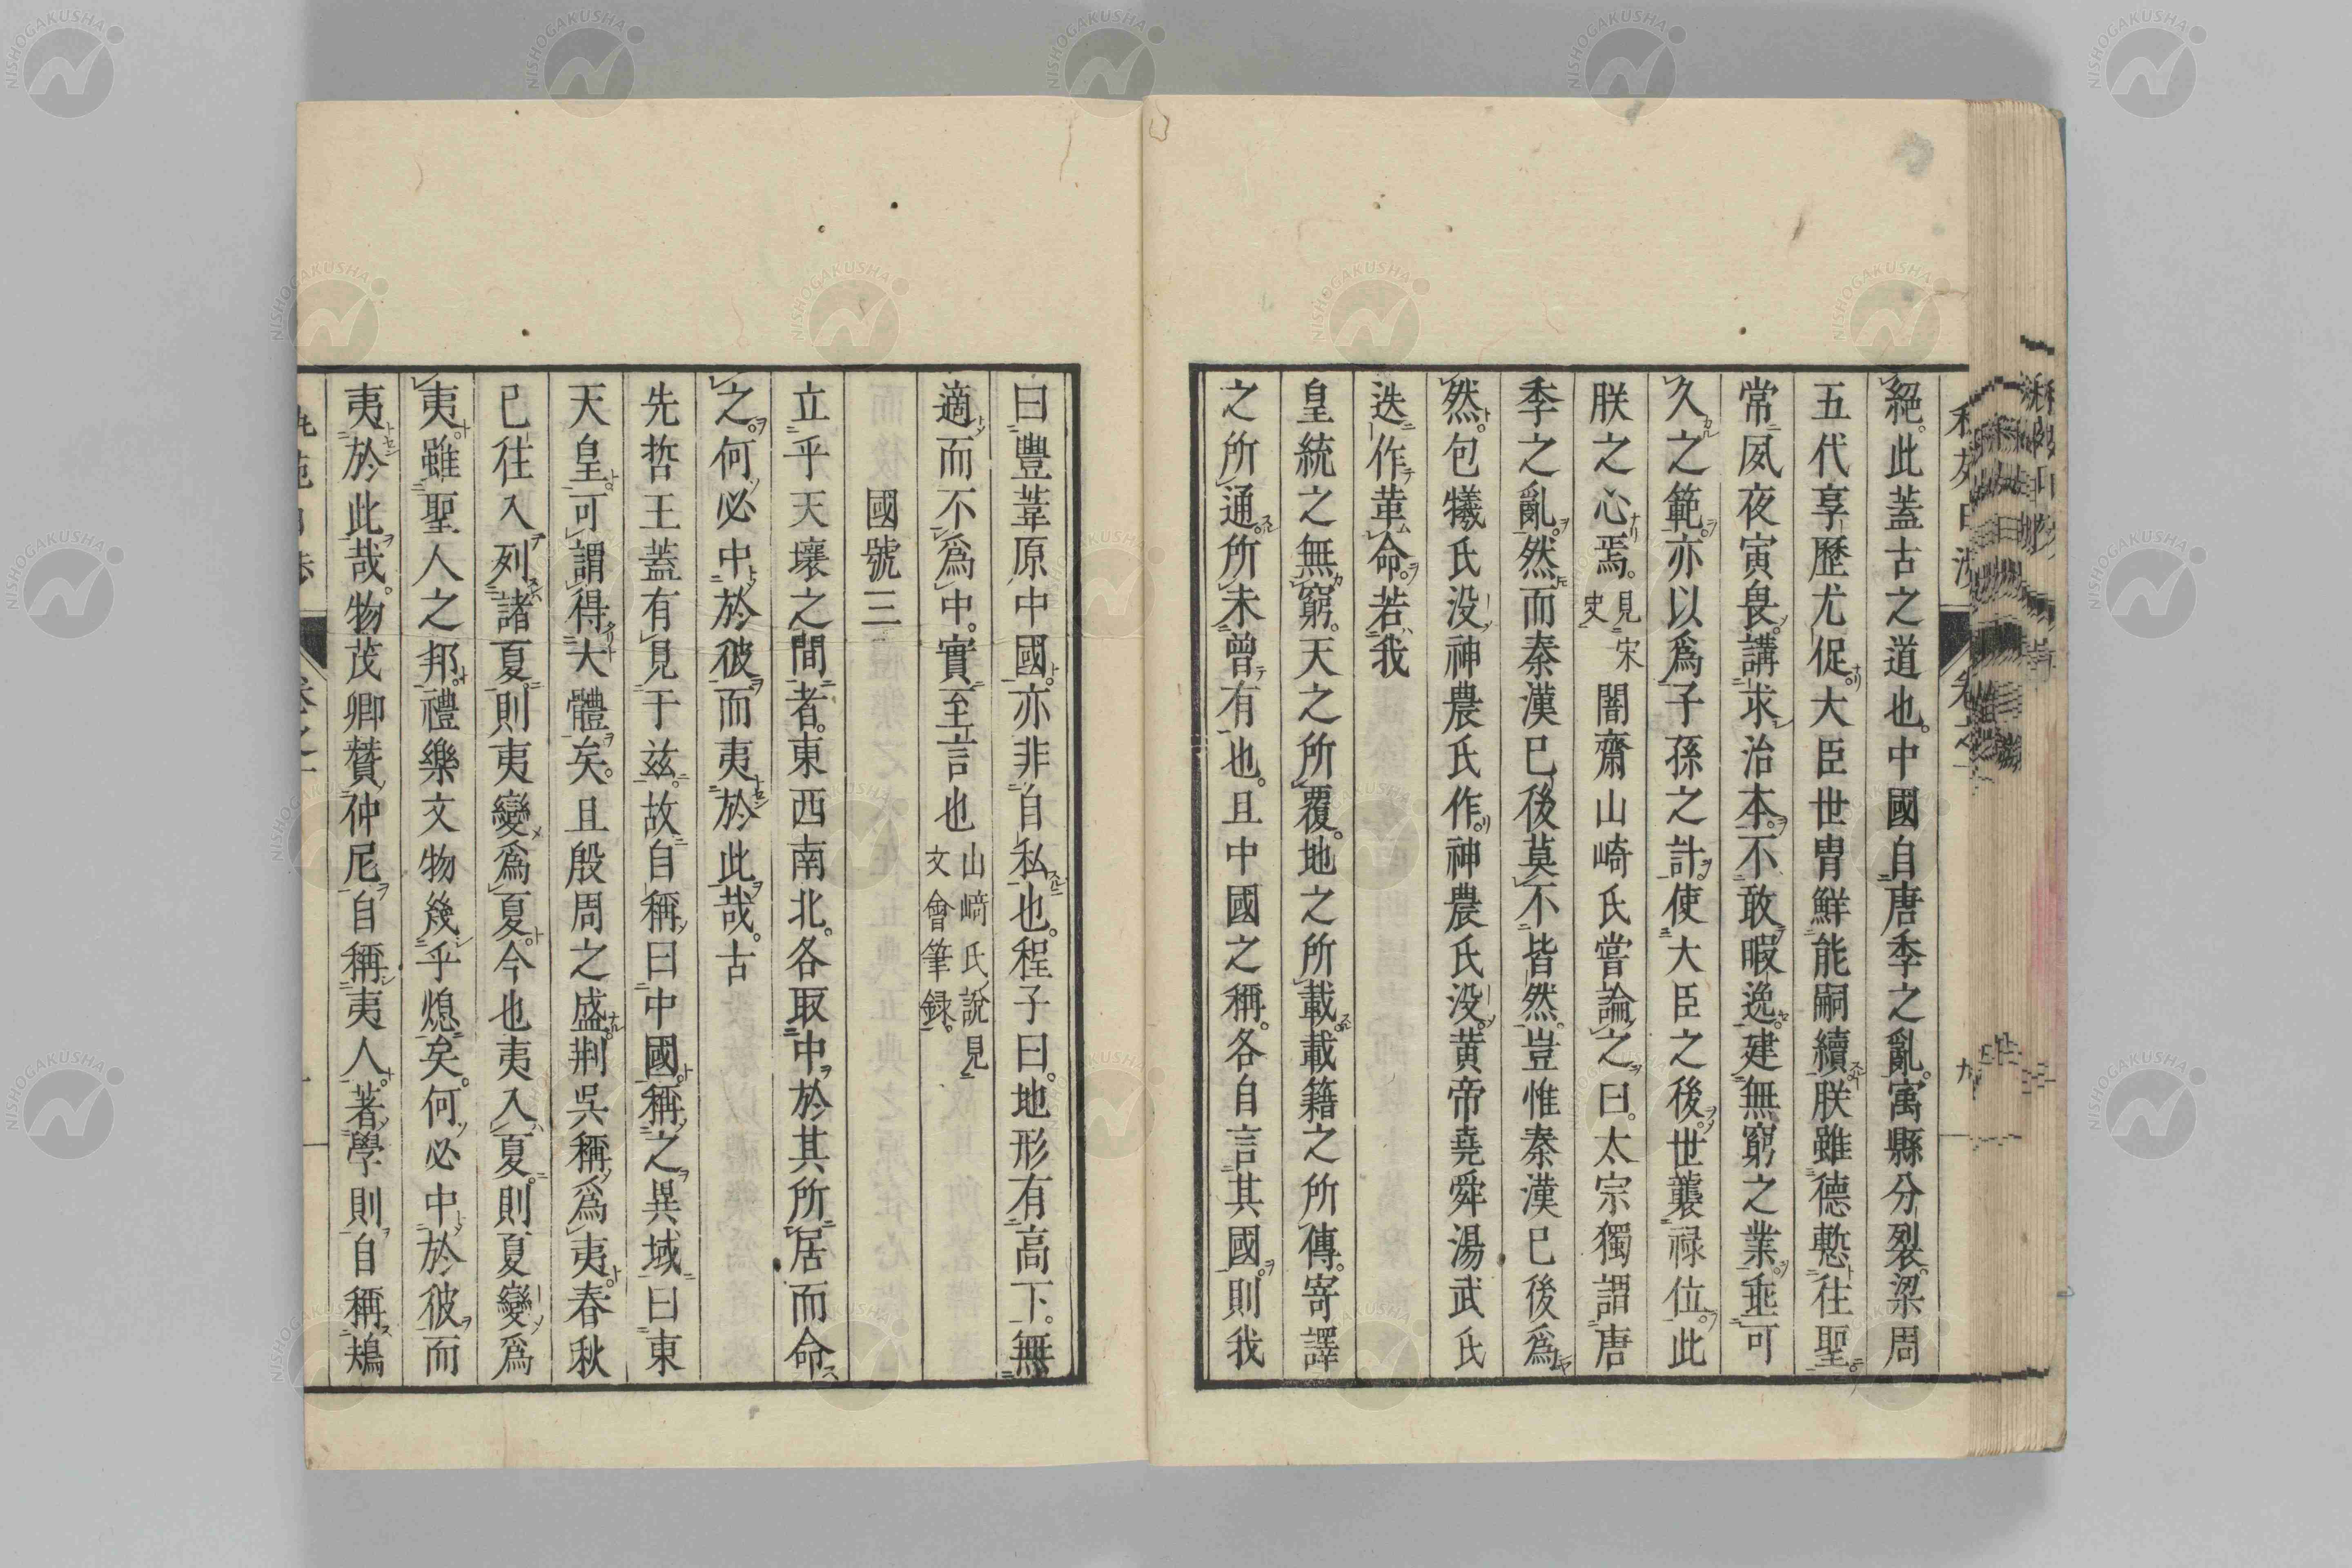 絕。此蓋古之道也。中國自唐季之亂。寓縣分裂。梁周
五代享歷尤促。大臣世冑鮮能嗣續。朕雖德慙往聖。
常夙夜寅畏。講求治本。不敢暇逸。建無窮之業。垂可
久之範。亦以爲子孫之計。使大臣之後。世襲祿位。此
朕之心焉。見宋史闇齋山崎氏嘗論之曰。太宗獨謂唐
季之亂。然而秦漢已後莫不皆然。豈惟秦漢已後爲
然。包犧氏没神農氏作。神農氏没。黄帝堯舜湯武氏
迭作革命。若我
皇統之無窮。天之所覆。地之所載。載籍之所傳。寄譯
之所通。所未曾有也。且中國之稱。各自言其國。則我
曰豐葦原中國。亦非自私也。程子曰。地形有高下。無
適而不爲中。實至言也山﨑氏說見文會筆録。
國號三
立乎天壤之間者。東西南北。各取中於其所居而命
之。何必中於彼而夷於此哉。古
先哲王蓋有見于兹。故自稱曰中國。稱之異域曰東
天皇。可謂得大體矣。且殷周之盛。荆吳稱爲夷。春秋
已往入列諸夏。則夷變爲夏。今也夷入夏。則夏變爲
夷。雖聖人之邦。禮樂文物幾乎熄矣。何必中於彼而
夷於此哉。物茂卿贊仲尼自稱夷人。著學則自稱鴂